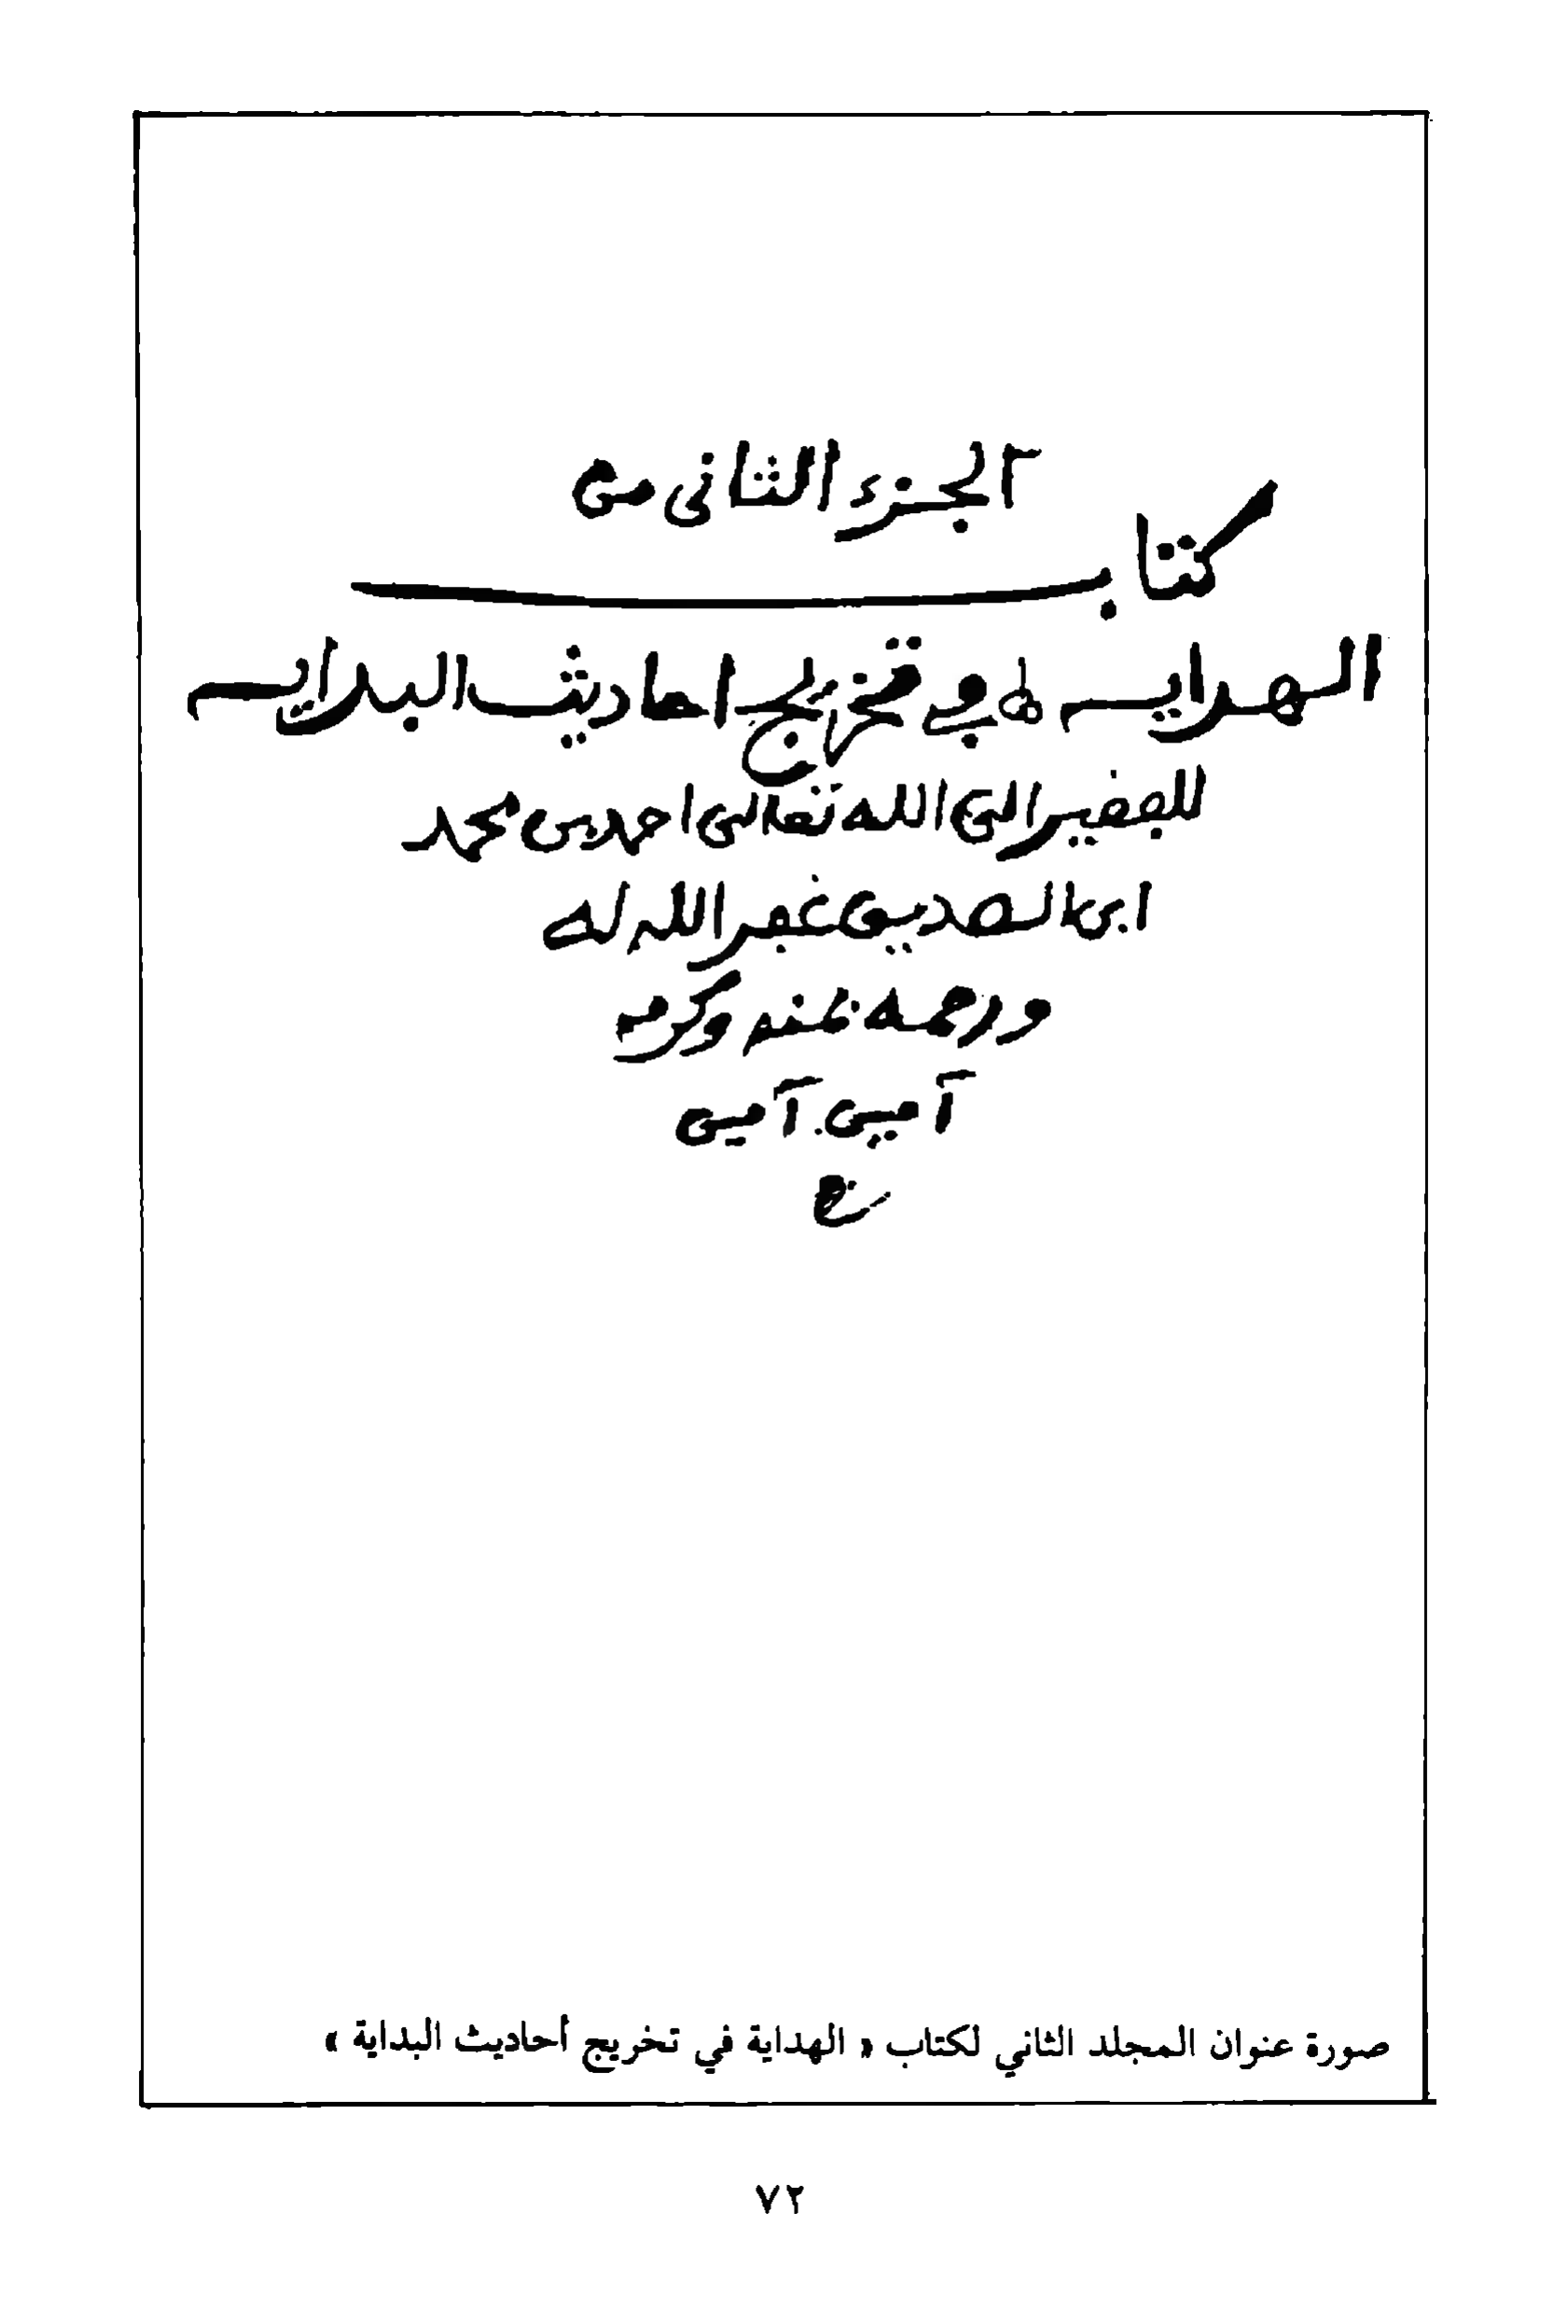 الجزء الثانى من
كتاب
الهدايه في تخريج احاديث البدايه
للفقير الى الله تعالى احمد بن محمد
ابن الصديق غفر الله له
ورحمه بمنه وكرمه
آمين. آمين
صورة عنوان المجلد الثاني لكتاب « الهداية في تخريج أحاديث البداية »
٧٢